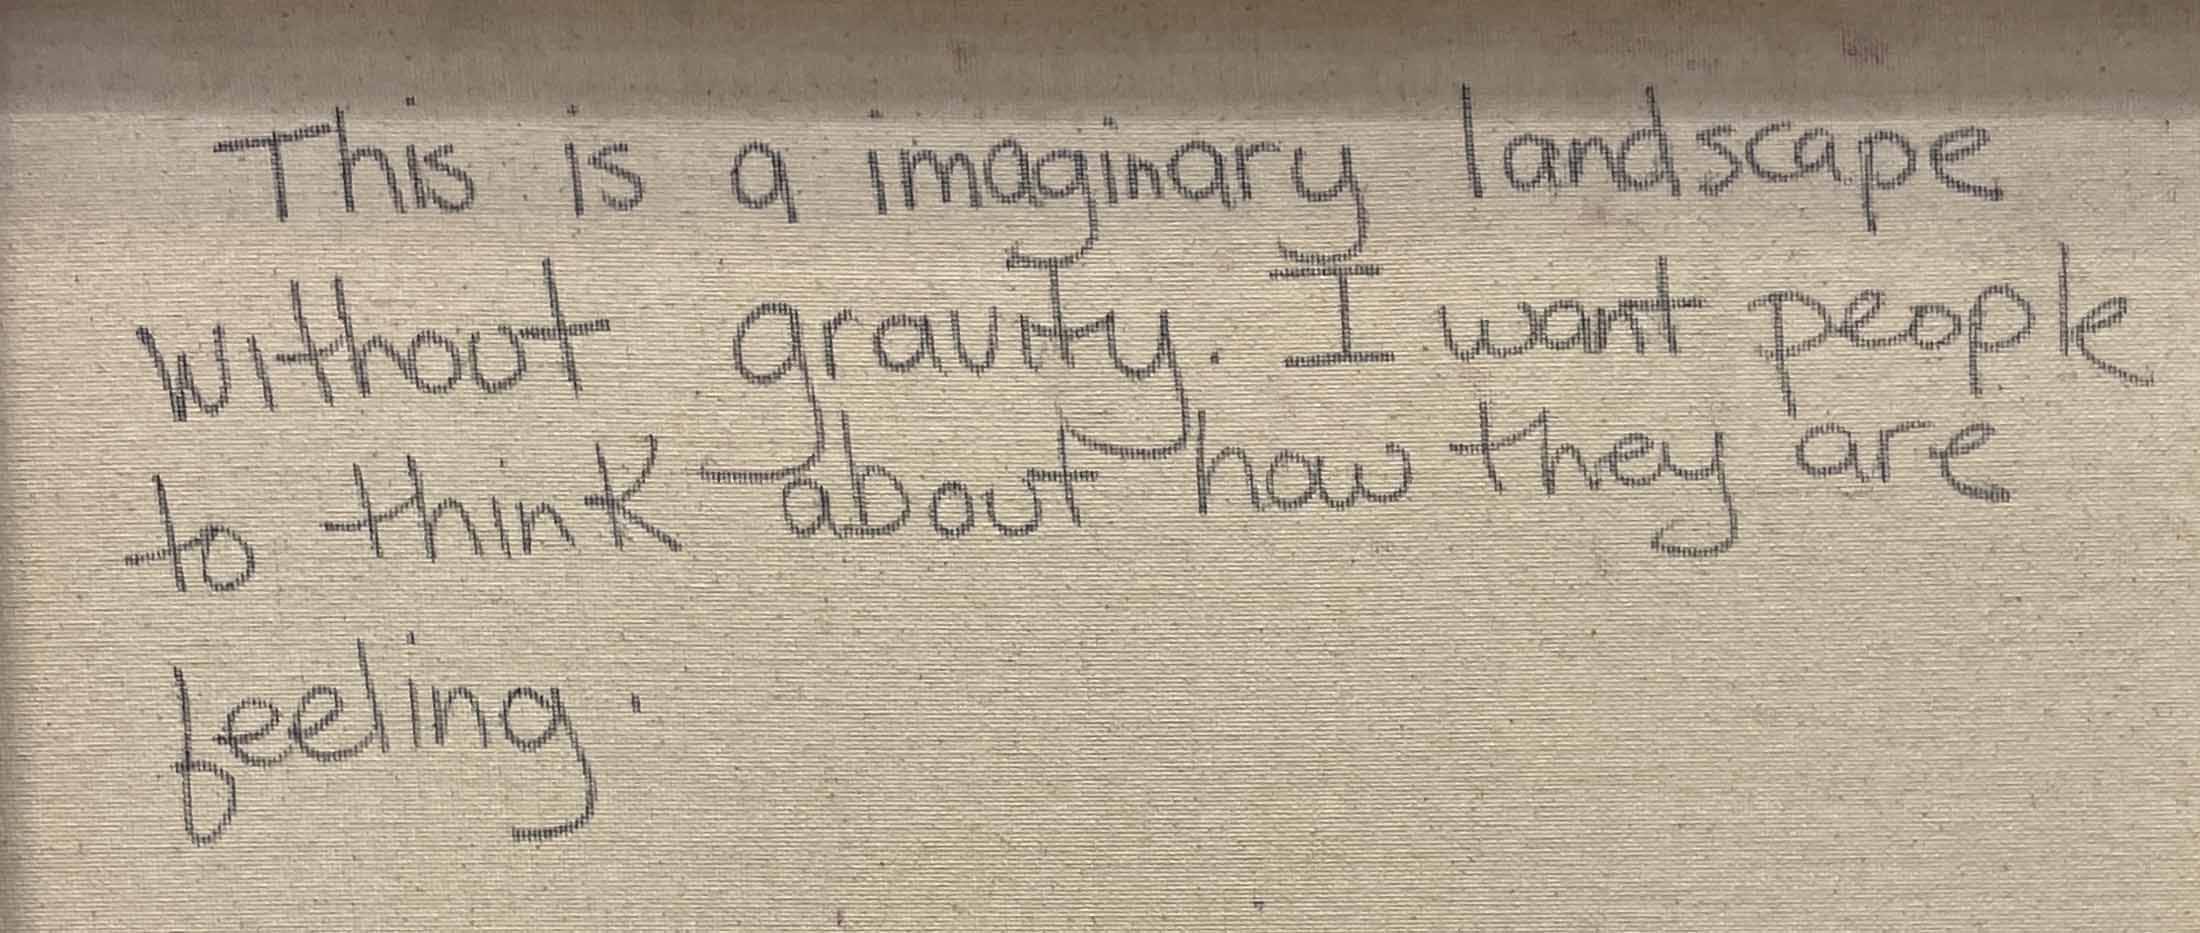 This is a imaginary landscape
without gravity. I want people
to think about how they are
feeling.